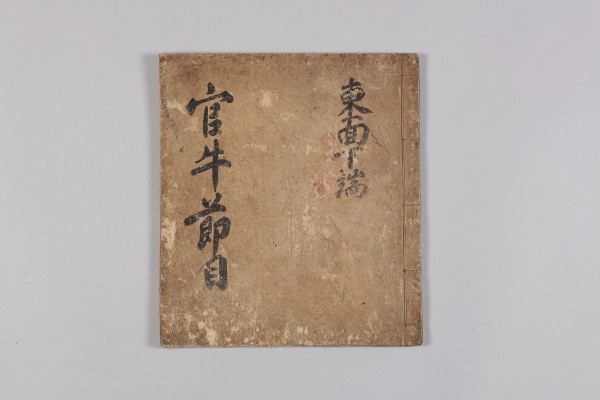 東面下端
官牛節目